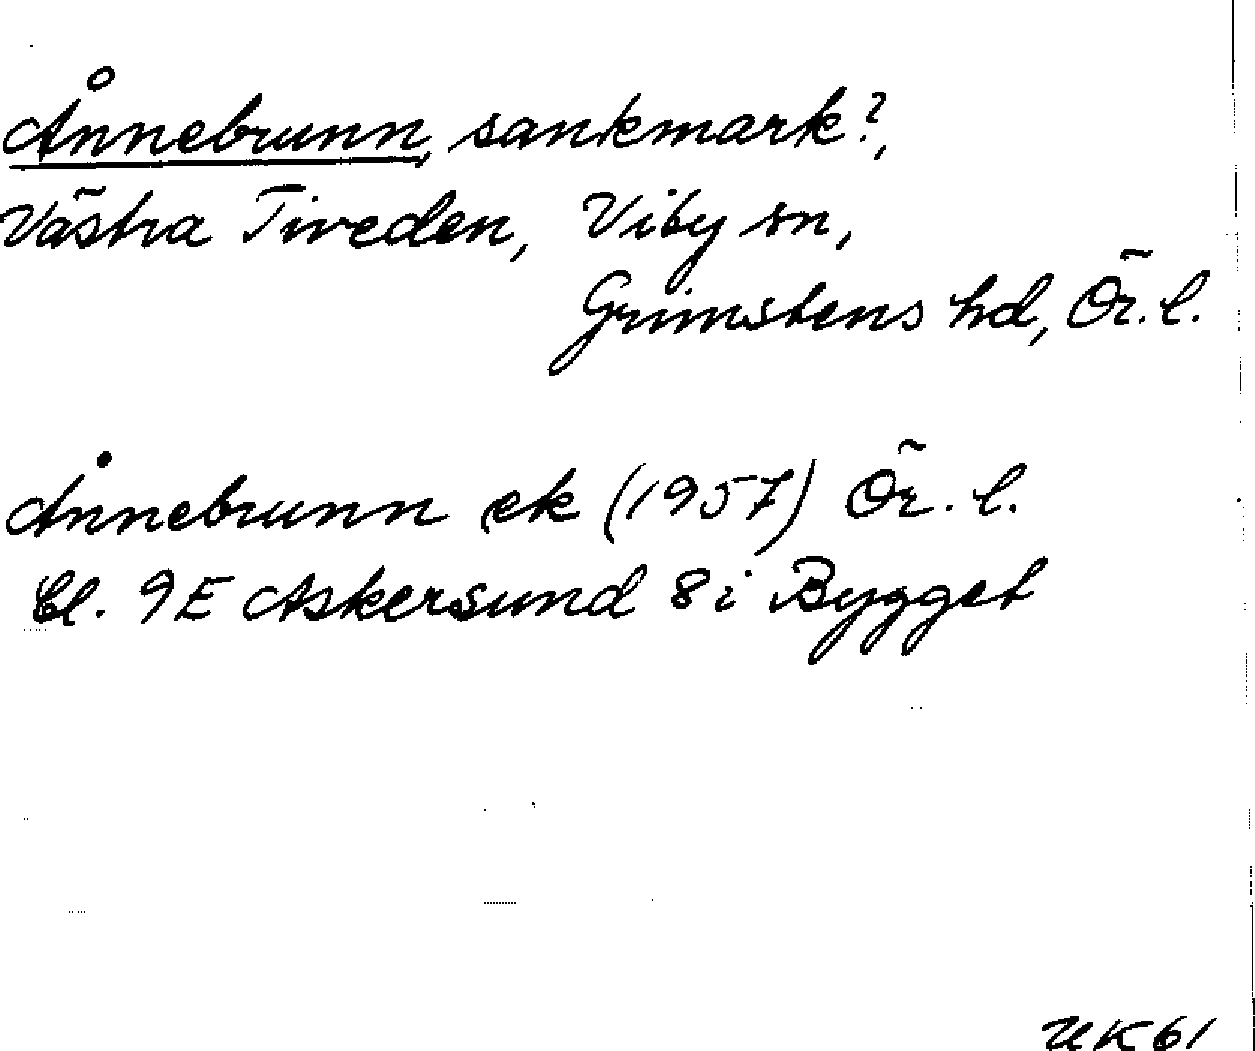 Ånnebrunn, sankmark?,
Västra Tiveden, Viby sn,
Grimstens hd, Ör. l.
Ånnebrunn ek (1957) Ör. l.
bl. 9E Askersund 8i Bygget
UK61